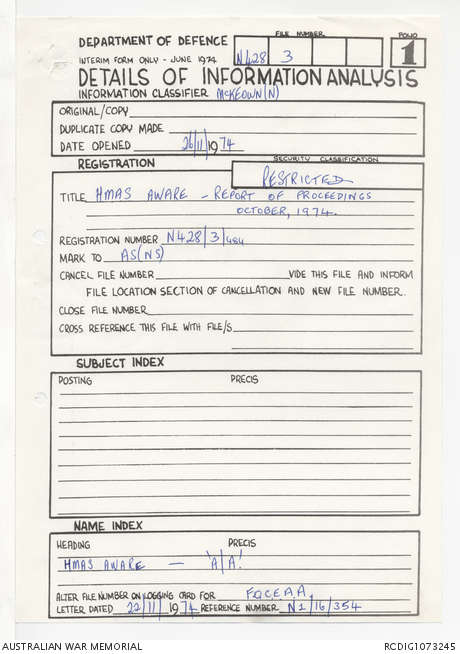 DEPARTMENT OF DEFENCE
FILE NUMBER
N428 3
FOLIO
1
INTERIM FORM ONLY - JUNE 1974
DETAILS OF INFORMATION ANALYSIS
INFORMATION CLASSIFIER McKEOWN(N)
ORIGINAL/COPY
DUPLICATE COPY MADE
DATE OPENED 26/11/1974
REGISTRATION
SECURITY CLASSIFICATION
RESTRICTED
TITLE HMAS AWARE - REPORT OF PROCEEDINGS
OCTOBER, 1974.
REGISTRATION NUMBER N428/3/484
MARK TO AS(NS)
CANCEL FILE NUMBER VIDE THIS FILE AND INFORM
FILE LOCATION SECTION OF CANCELLATION AND NEW FILE NUMBER.
CLOSE FILE NUMBER
CROSS REFERENCE THIS FILE WITH FILE/S
SUBJECT INDEX
POSTING PRECIS
NAME INDEX
HEADING PRECIS
HMAS AWARE — 'A/A'
ALTER FILE NUMBER ON LOGGING CARD FOR FOCEAA
LETTER DATED 22/11/1974 REFERENCE NUMBER N1/16/354
AUSTRALIAN WAR MEMORIAL
RCDIG1073245